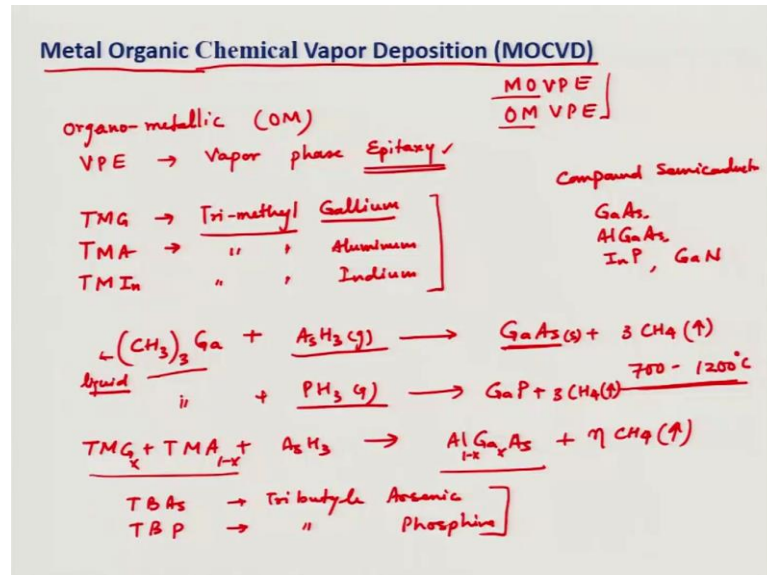 Metal Organic Chemical Vapor Deposition (MOCVD)
MOVPE
OM VPE
Organo-metallic (OM)
VPE → Vapor phase Epitaxy ✓
Compound Semiconduct
GaAs.
AlGaAs.
InP, GaN
TMG → Tri-methyl Gallium
TMA → " " Aluminum
TMIn " " Indium
(CH₃)₃ Ga + AsH₃(g) → GaAs(s) + 3 CH₄(↑)
liquid
" + PH₃(g) → GaP + 3 CH₄(↑)
700 - 1200°C
TMGₓ + TMA₁₋ₓ + AsH₃ → Al₁₋ₓGaₓAs + η CH₄(↑)
TBAs → Tributyle Arsenic
TBP → " Phosphine